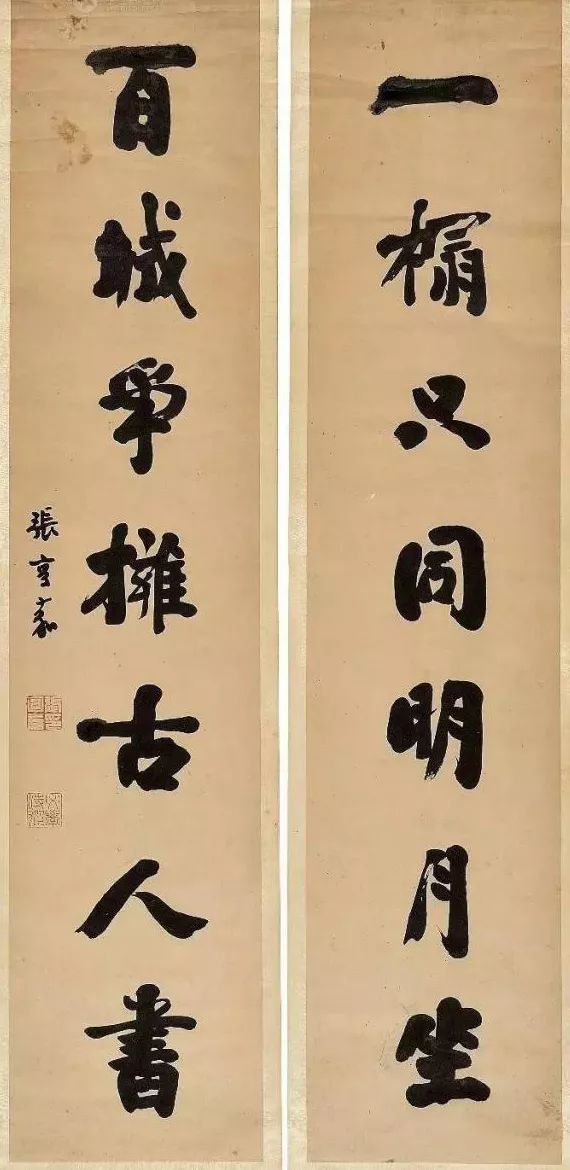 一榻只同明月坐
百城争擁古人書
張亨嘉